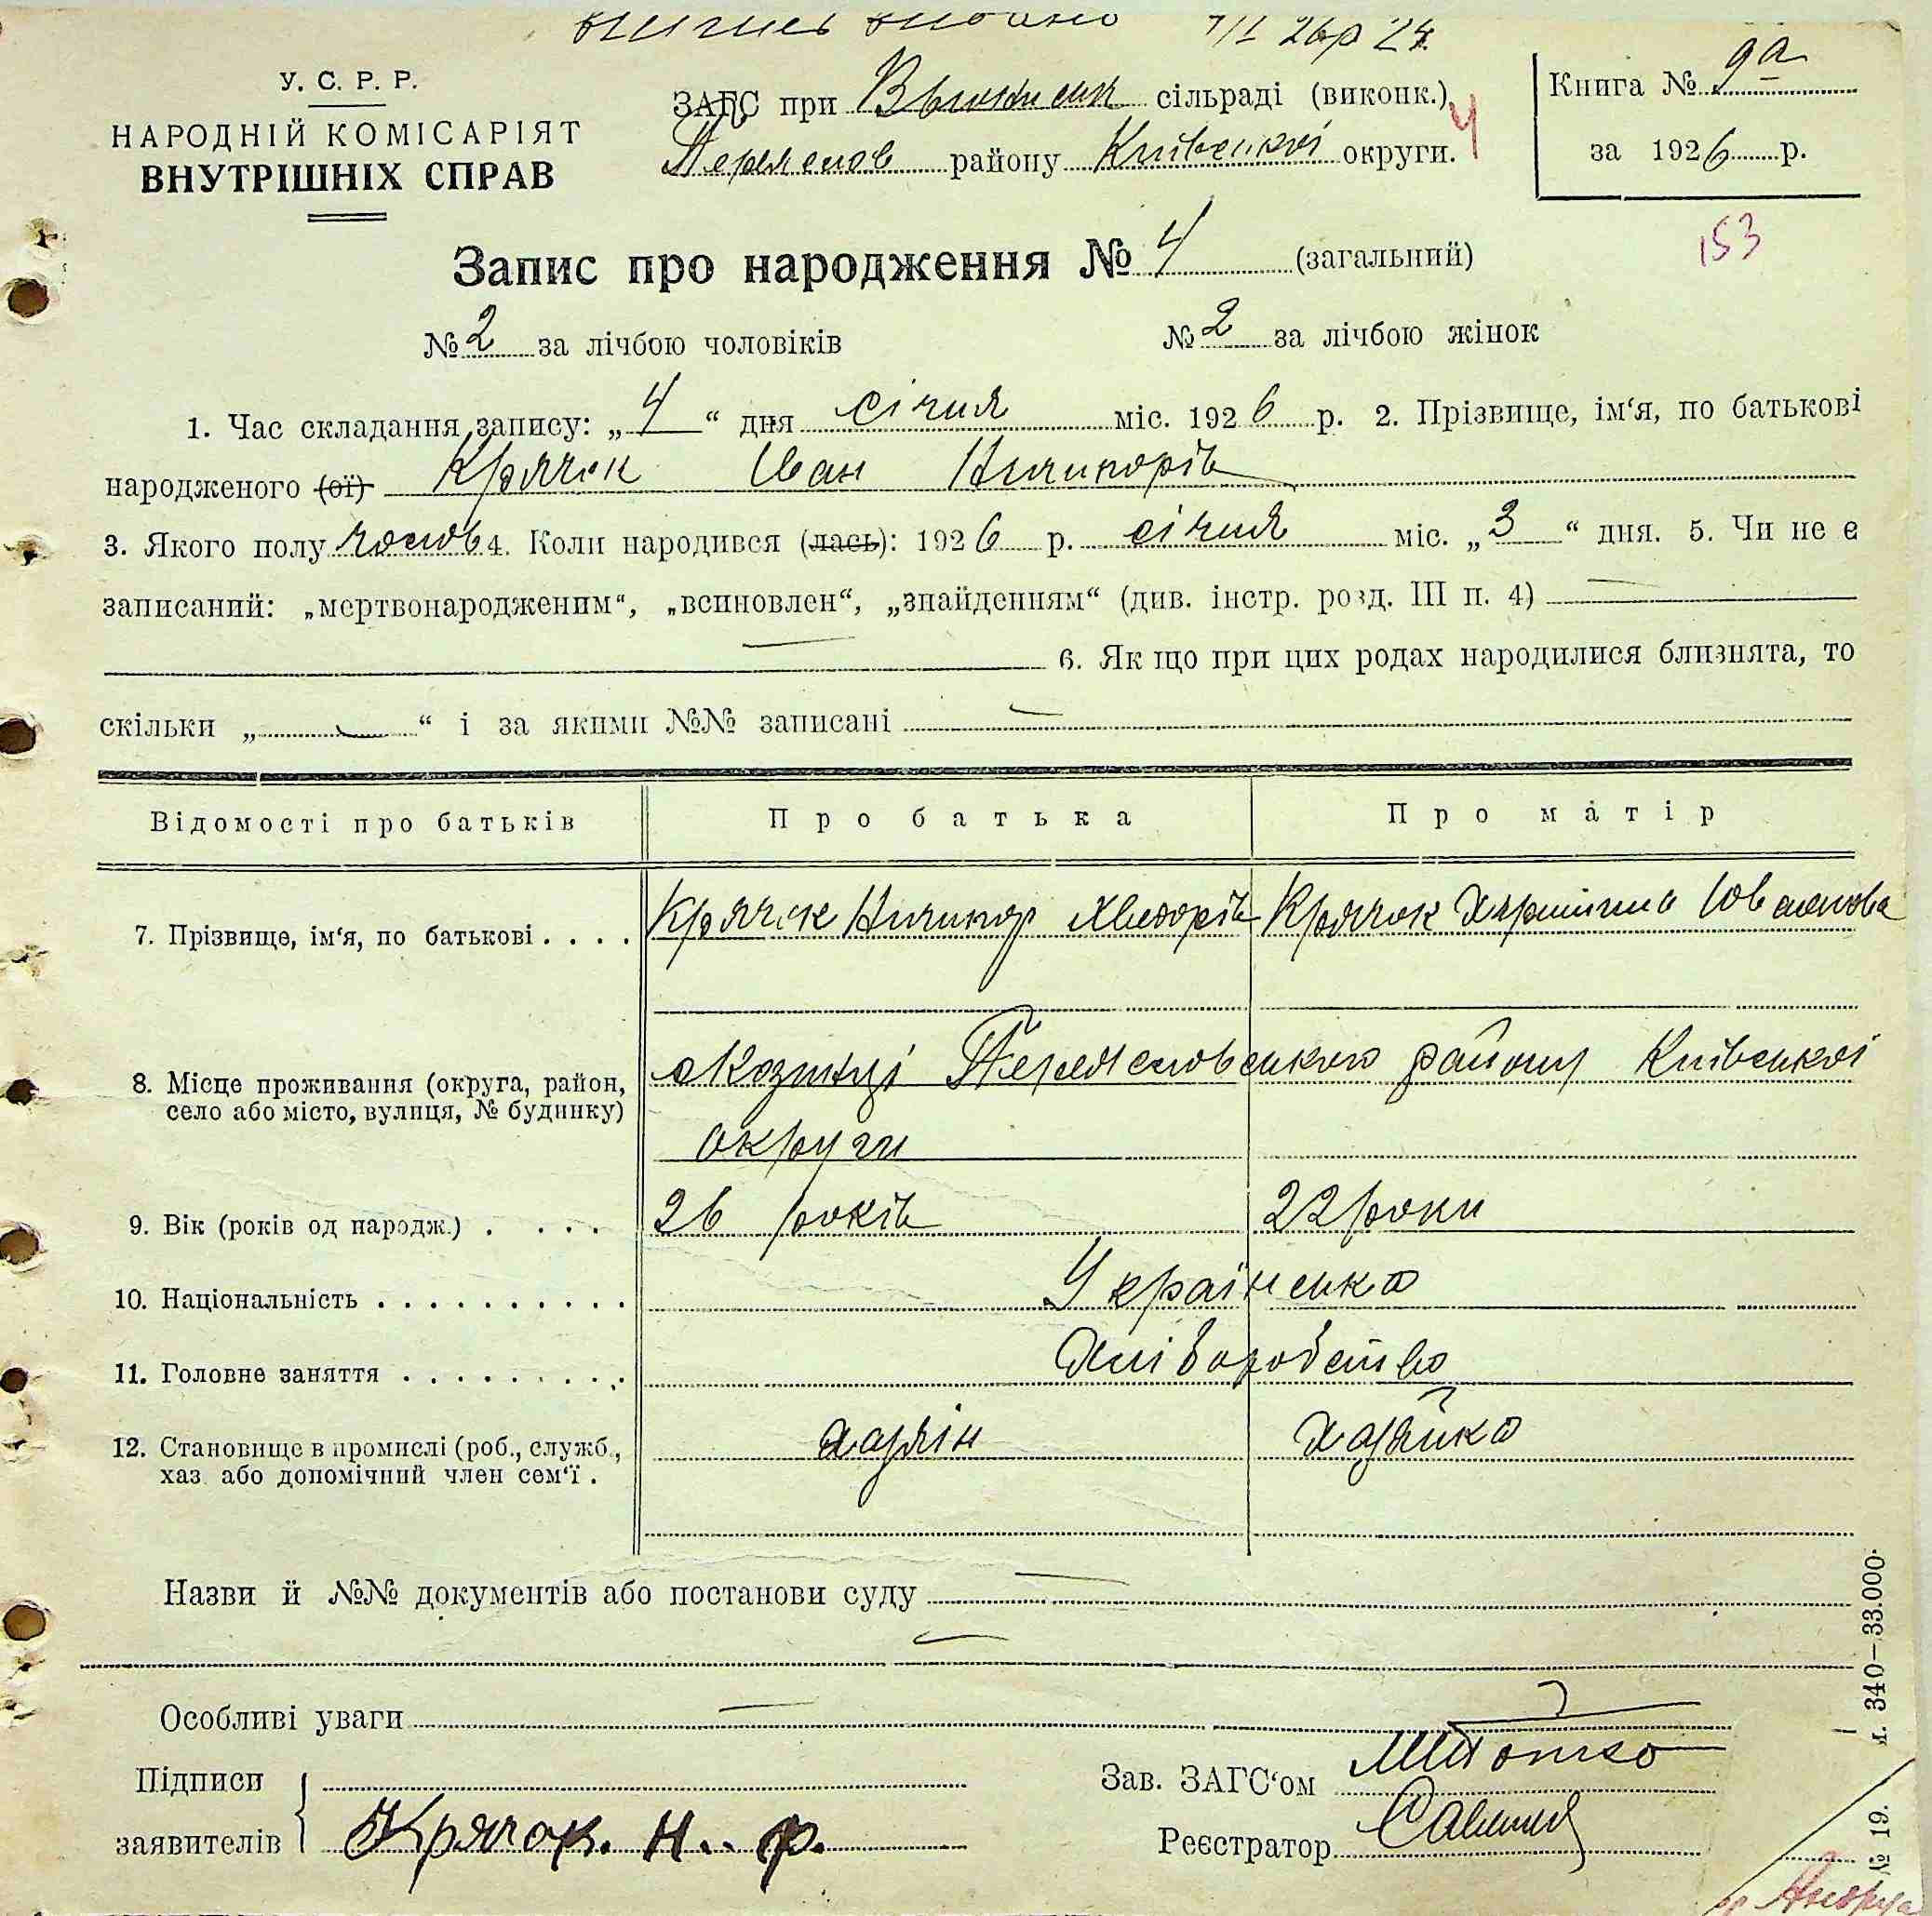 У. С. Р. Р.
НАРОДНІЙ КОМІСАРІЯТ
ВНУТРІШНІХ СПРАВ
ЗАГС при сільраді (виконк.)
4
району Київської округи.
Книга № 9а
за 1926 р.
153
Запис про народження № 4 (загальний)
№ 2 за лічбою чоловіків № 2 за лічбою жінок
1. Час складання запису: „4“ дня січня міс. 1926 р. 2. Прізвище, ім‘я, по батькові
народженого (ої) Крячок Іван Ничипорів
3. Якого полу чолов 4. Коли народився (лась): 1926 р. січня міс. „3“ дня. 5. Чи не є
записаний: „мертвонародженим“, „всиновлен“, „знайденням“ (див. інстр. розд. III п. 4) —
— 6. Якщо при цих родах народилися близнята, то
скільки „—“ і за якими №№ записані —
Відомості про батьків Про батька Про матір
7. Прізвище, ім‘я, по батькові . . . . Крячок Ничипор Хведорів Крячок
8. Місце проживання (округа, район,
село або місто, вулиця, № будинку)
району Київської
округи
9. Вік (років од народж.) . . . . 26 років 22 роки
10. Національність . . . . . . . . . . . Українська
11. Головне заняття . . . . . . . . . . Хліборобство
12. Становище в промислі (роб., служб.,
хаз. або допомічний член сем‘ї .
хазяїн хазяйка
Назви й №№ документів або постанови суду —
—
Особливі уваги —
Підписи
заявителів Крячок. Н. Ф.
Зав. ЗАГС‘ом
Реєстратор
340—33.000.
№ 19.